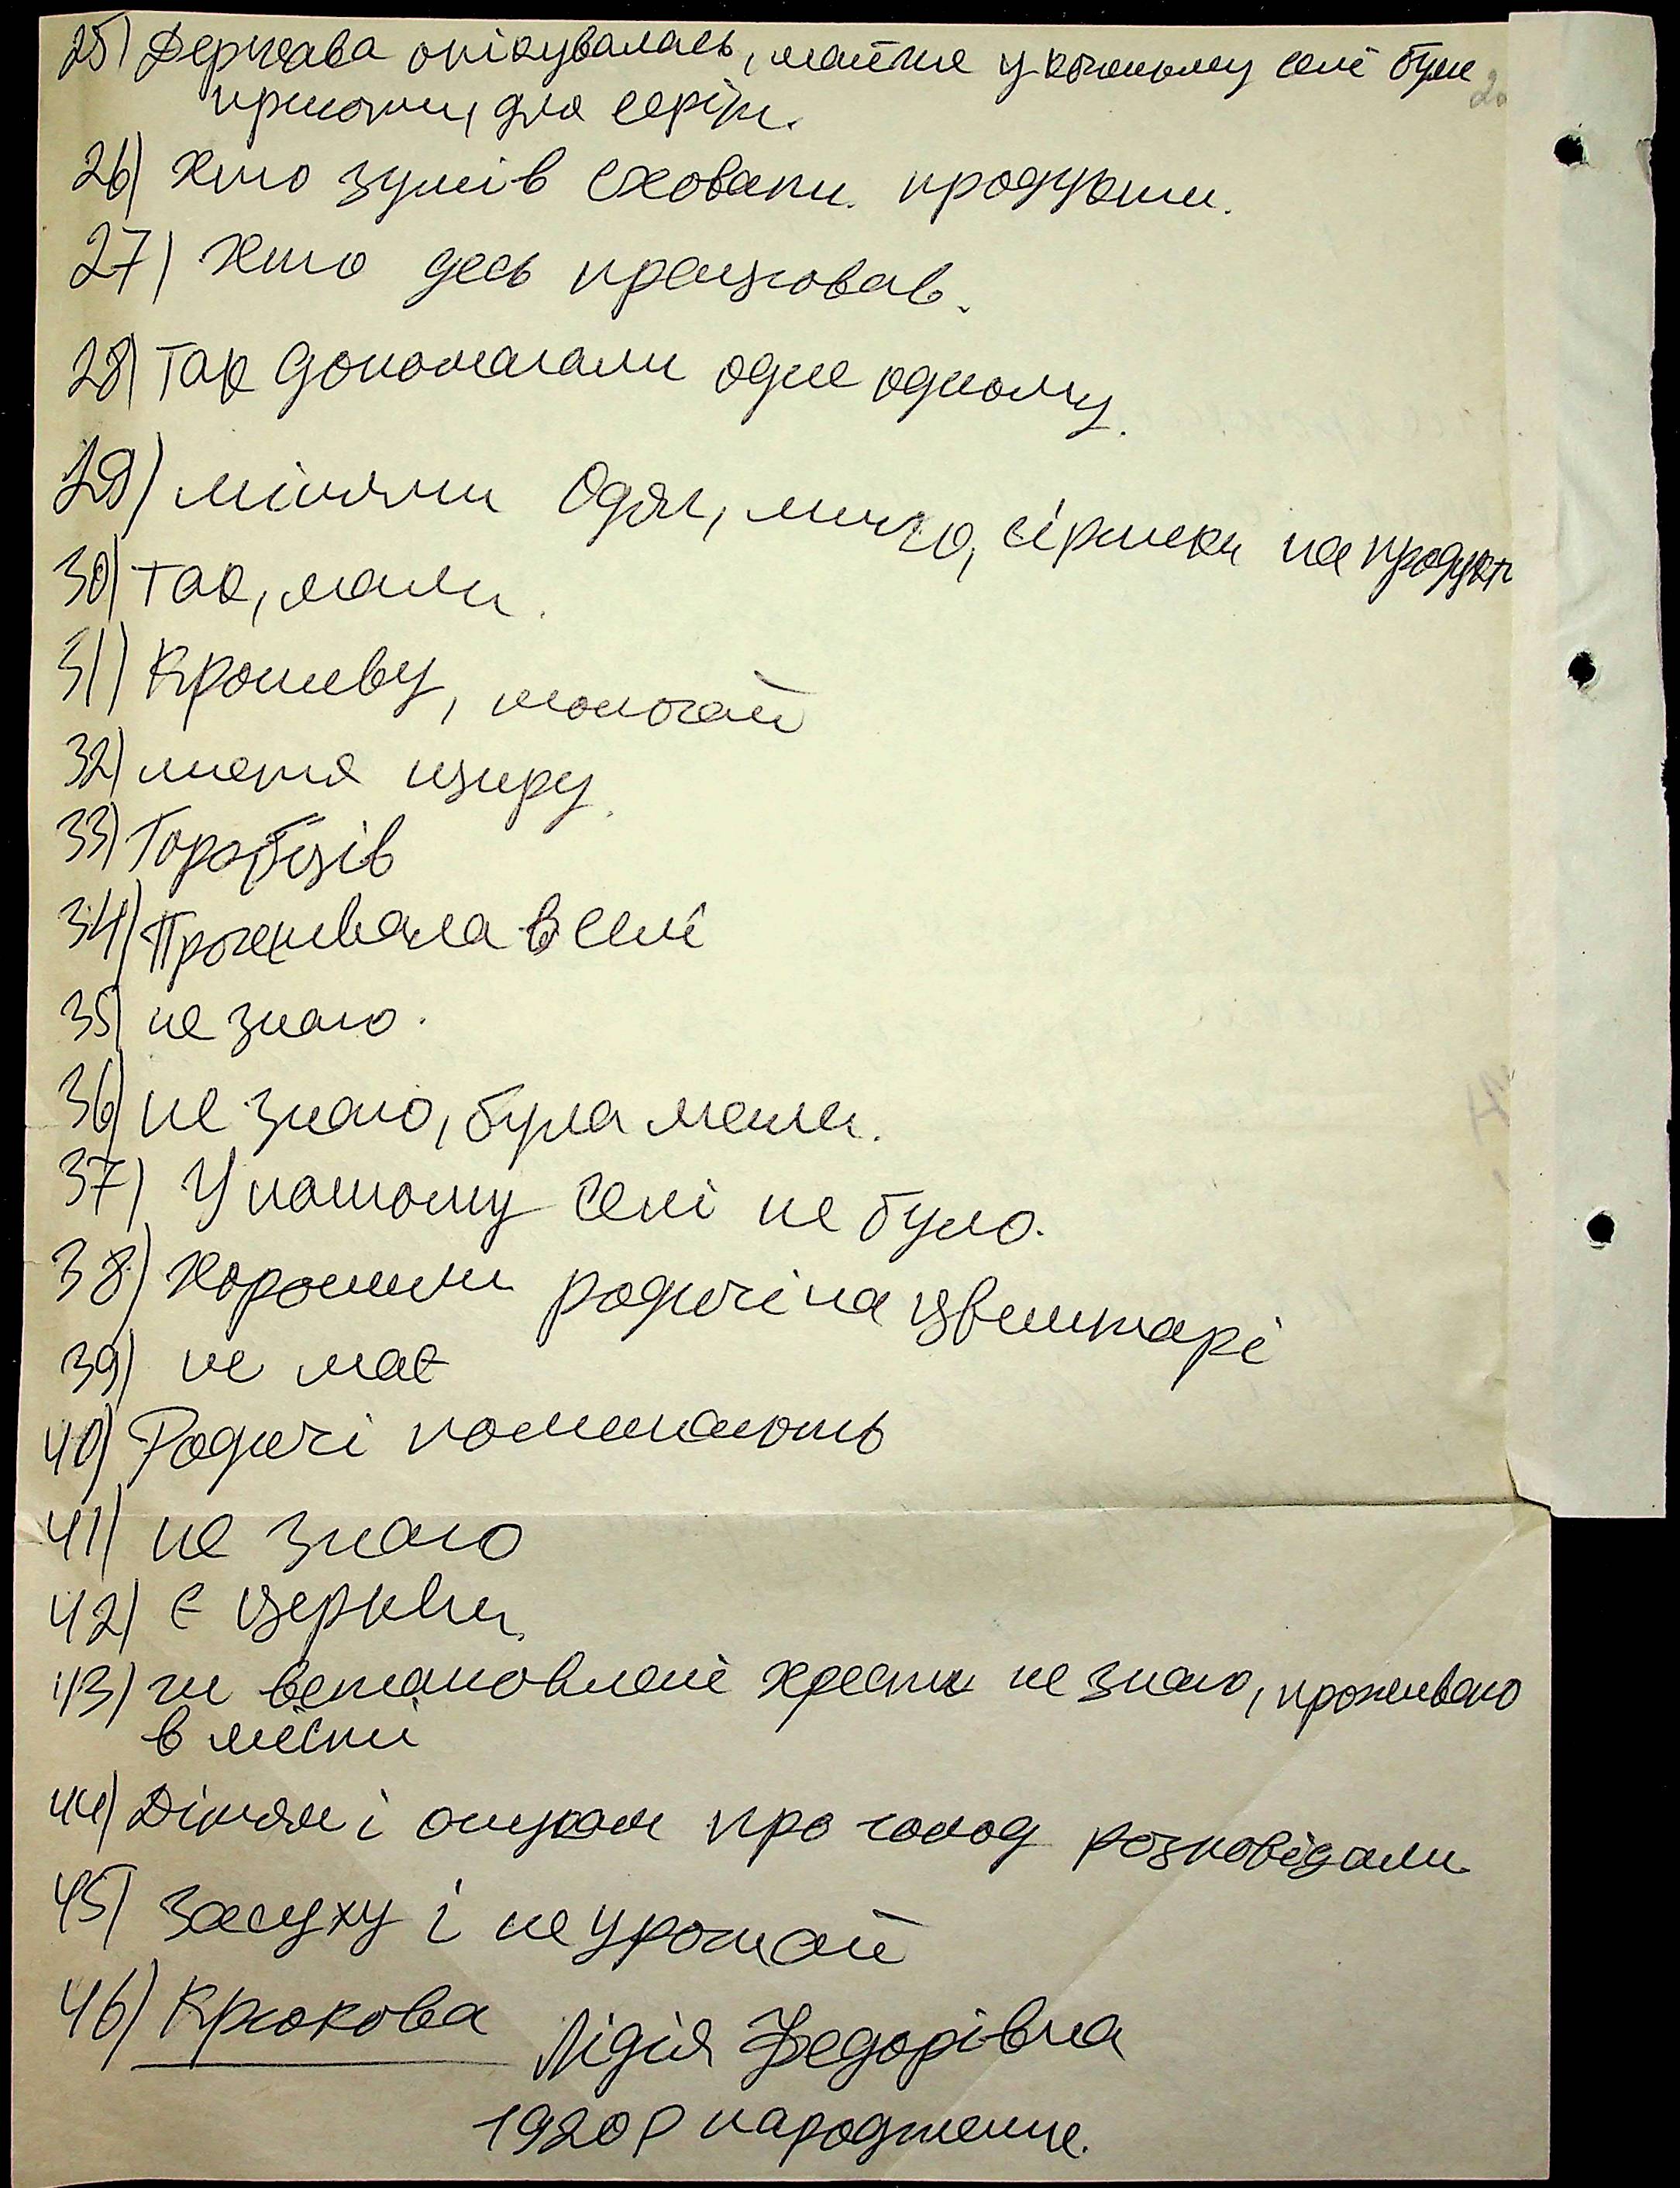 25) Держава опікувалась, майже у кожному селі були
притони, для сиріт.
26) Хто зумів сховати продукти.
27) Хто десь працював.
28) Так допомагали одне одному.
29) міняли Одяг, мило, сірники на продукти
30) Так, мали.
31) Кропиву, молочай
32) листя щиру.
33) Горобців
34) Проживала в селі
35) не знаю.
36) не знаю, була мала.
37) У нашому селі не було.
38) Хоронили родичі на цвинтарі
39) не має
40) Родичі поминають
41) не знаю
42) Є церкви.
43) чи встановлені хрести не знаю, проживаю
в місті
44) Дітям і онукам про голод розповідали
45) Засуху і неурожай
46) Крюкова Лідія Федорівна
1920 р народження.